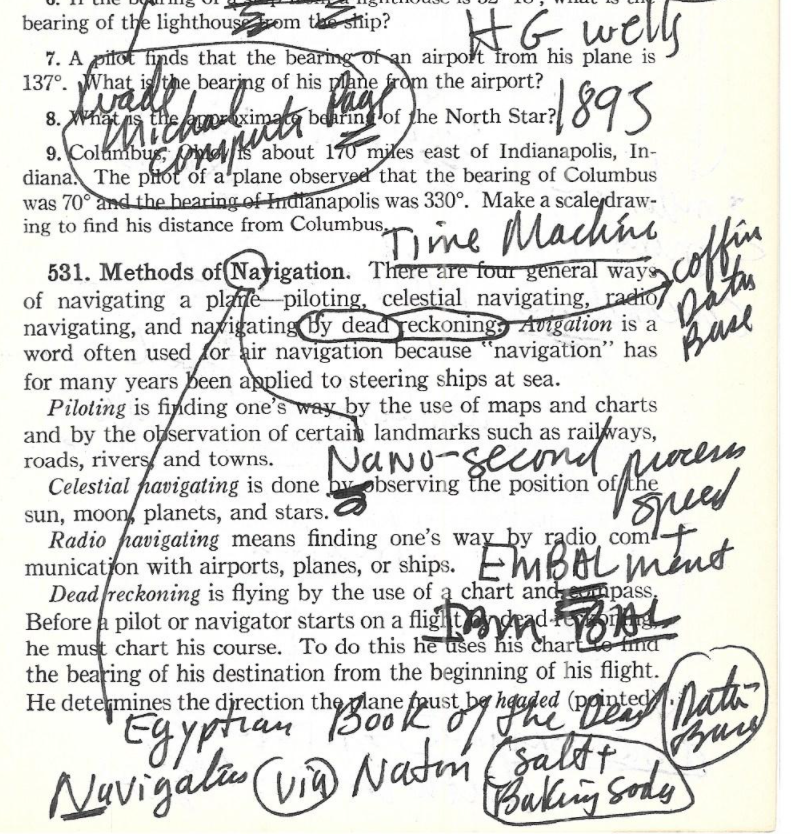 bearing of the lighthouse from the ship?
H G wells
7. A pilot finds that the bearing of an airport from his plane is
137°. What is the bearing of his plane from the airport?
8. What is the approximate bearing of the North Star?
1895
Michael
9. Columbus, Ohio, is about 170 miles east of Indianapolis, In-
diana. The pilot of a plane observed that the bearing of Columbus
was 70° and the bearing of Indianapolis was 330°. Make a scale draw-
ing to find his distance from Columbus.
Time Machine
531. Methods of Navigation. There are four general ways
of navigating a plane—piloting, celestial navigating, radio
navigating, and navigating by dead reckoning. Avigation is a
word often used for air navigation because "navigation" has
for many years been applied to steering ships at sea.
coffin
Data
Base
Piloting is finding one's way by the use of maps and charts
and by the observation of certain landmarks such as railways,
roads, rivers, and towns.
Nano-second process
speed
Celestial navigating is done by observing the position of the
sun, moon, planets, and stars.
Radio navigating means finding one's way by radio com-
munication with airports, planes, or ships.
+
EmBALment
Dead reckoning is flying by the use of a chart and compass.
Before a pilot or navigator starts on a flight by dead reckoning,
IBM BAL
he must chart his course. To do this he uses his chart to find
the bearing of his destination from the beginning of his flight.
He determines the direction the plane must be headed (pointed)
Egyptian Book of the Dead
Data-
Base
Navigation via Natron
Salt +
Baking Soda